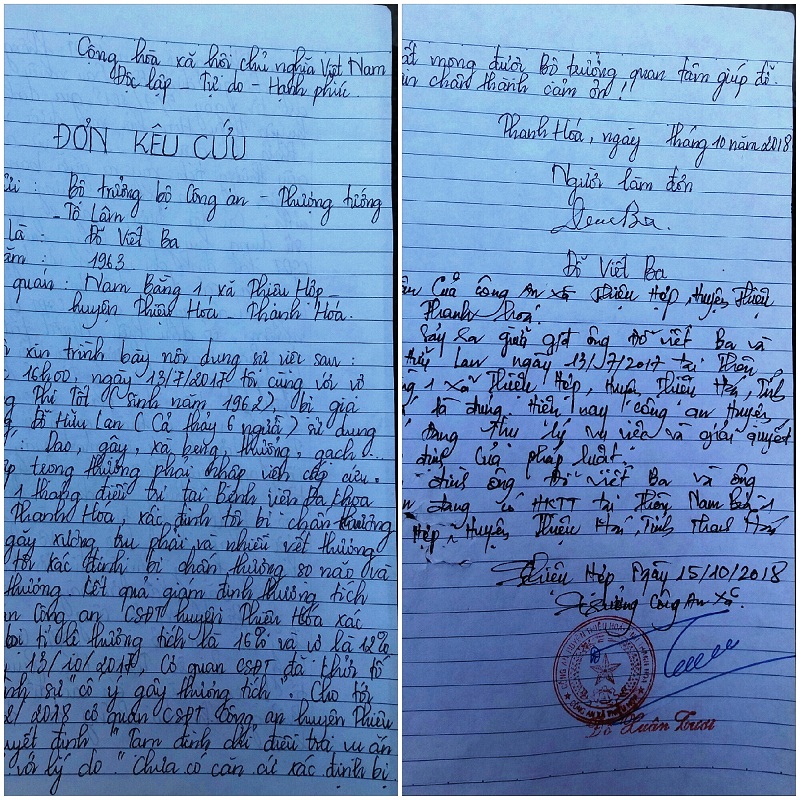 Cộng hòa xã hội chủ nghĩa Việt Nam
Độc lập - Tự do - Hạnh phúc
ĐƠN KÊU CỨU
Bộ trưởng bộ Công an - Thượng tướng
- Tô Lâm
là : Đỗ Viết Ba
1963
quán : Nam Bằng 1, xã Thiệu Hợp
huyện Thiệu Hóa - Thanh Hóa.
xin trình bày nội dung sự việc sau :
16h00, ngày 13/7/2017 tôi cùng với vợ
Thị Tốt (sinh năm 1962), bị gia
Đỗ Hữu Lan (Cả thảy 6 người) sử dụng
: Dao, gậy, xà beng, thuổng, gạch ...
trọng thương phải nhập viện cấp cứu.
1 tháng điều trị tại bệnh viện Đa khoa
Thanh Hóa, xác định tôi bị chấn thương
gãy xương trụ phải và nhiều vết thương
tôi xác định bị chấn thương sọ não và
thương. Kết quả giám định thương tích
Công an CSĐT huyện Thiệu Hóa xác
tỉ lệ thương tích là 16% và vợ là 12%
13/10/2017, Cơ quan CSĐT đã khởi tố
sự "cố ý gây thương tích". Cho tới
2/2018 cơ quan CSĐT Công an huyện Thiệu
quyết định "Tạm đình chỉ điều tra vụ án
với lý do "Chưa có căn cứ xác định bị
mong được Bộ trưởng quan tâm giúp đỡ.
chân thành cảm ơn !
Thanh Hóa, ngày tháng 10 năm 2018
Người làm đơn
Đỗ Viết Ba
Của công An xã Thiệu Hợp, Huyện Thiệu
Thanh Hoá.
Xảy ra giữa gđ ông Đỗ Viết Ba và
Lan ngày 13/7/2017 tại Thôn
1 xã Thiệu Hợp, Huyện Thiệu Hoá, Tỉnh
là đúng hiện nay công an Huyện
đang thụ lý vụ việc và giải quyết
định của pháp luật.
đình ông Đỗ Viết Ba và ông
đang có HKTT tại Thôn Nam Bằng 1
Hợp, Huyện Thiệu Hoá, Tỉnh Thanh Hoá
Thiệu Hợp Ngày 15/10/2018
Trưởng Công An Xã